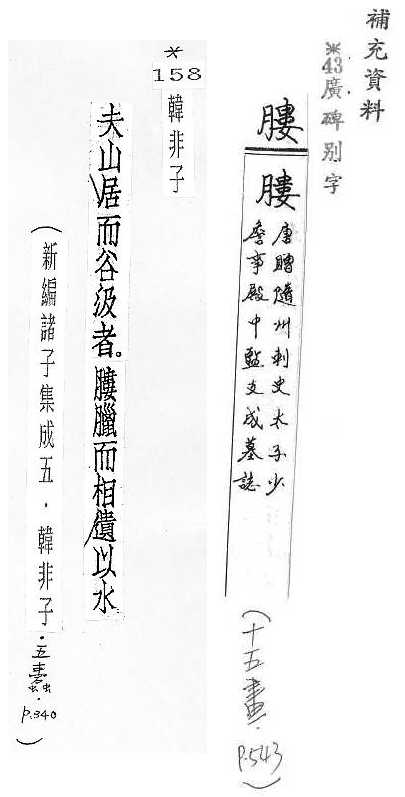 補充資料
※43廣碑別字
膢
膢
唐贈隨州刺史太子少
詹事殿中監支成墓誌
(十五畫.p.543)
*
158
韓非子
夫山居而谷汲者。膢臘而相遺以水
(新編諸子集成五．韓非子．五蠹．p.340)